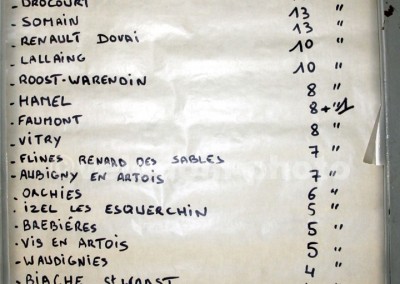 - DROCOURT
- SOMAIN 13 "
- RENAULT DOUAI 13 "
- LALLAING 10 "
- ROOST-WARENDIN 10 "
- HAMEL 8 "
- FAUMONT 8 + "1
- VITRY 8 "
- FLINES RENARD DES SABLES 7 "
- AUBIGNY EN ARTOIS 7 "
- ORCHIES 6 "
- IZEL LES ESQUERCHIN 5 "
- BREBIÉRES 5 "
- VIS EN ARTOIS 5 "
- WAUDIGNIES 4 "
- BIACHE St WAAST